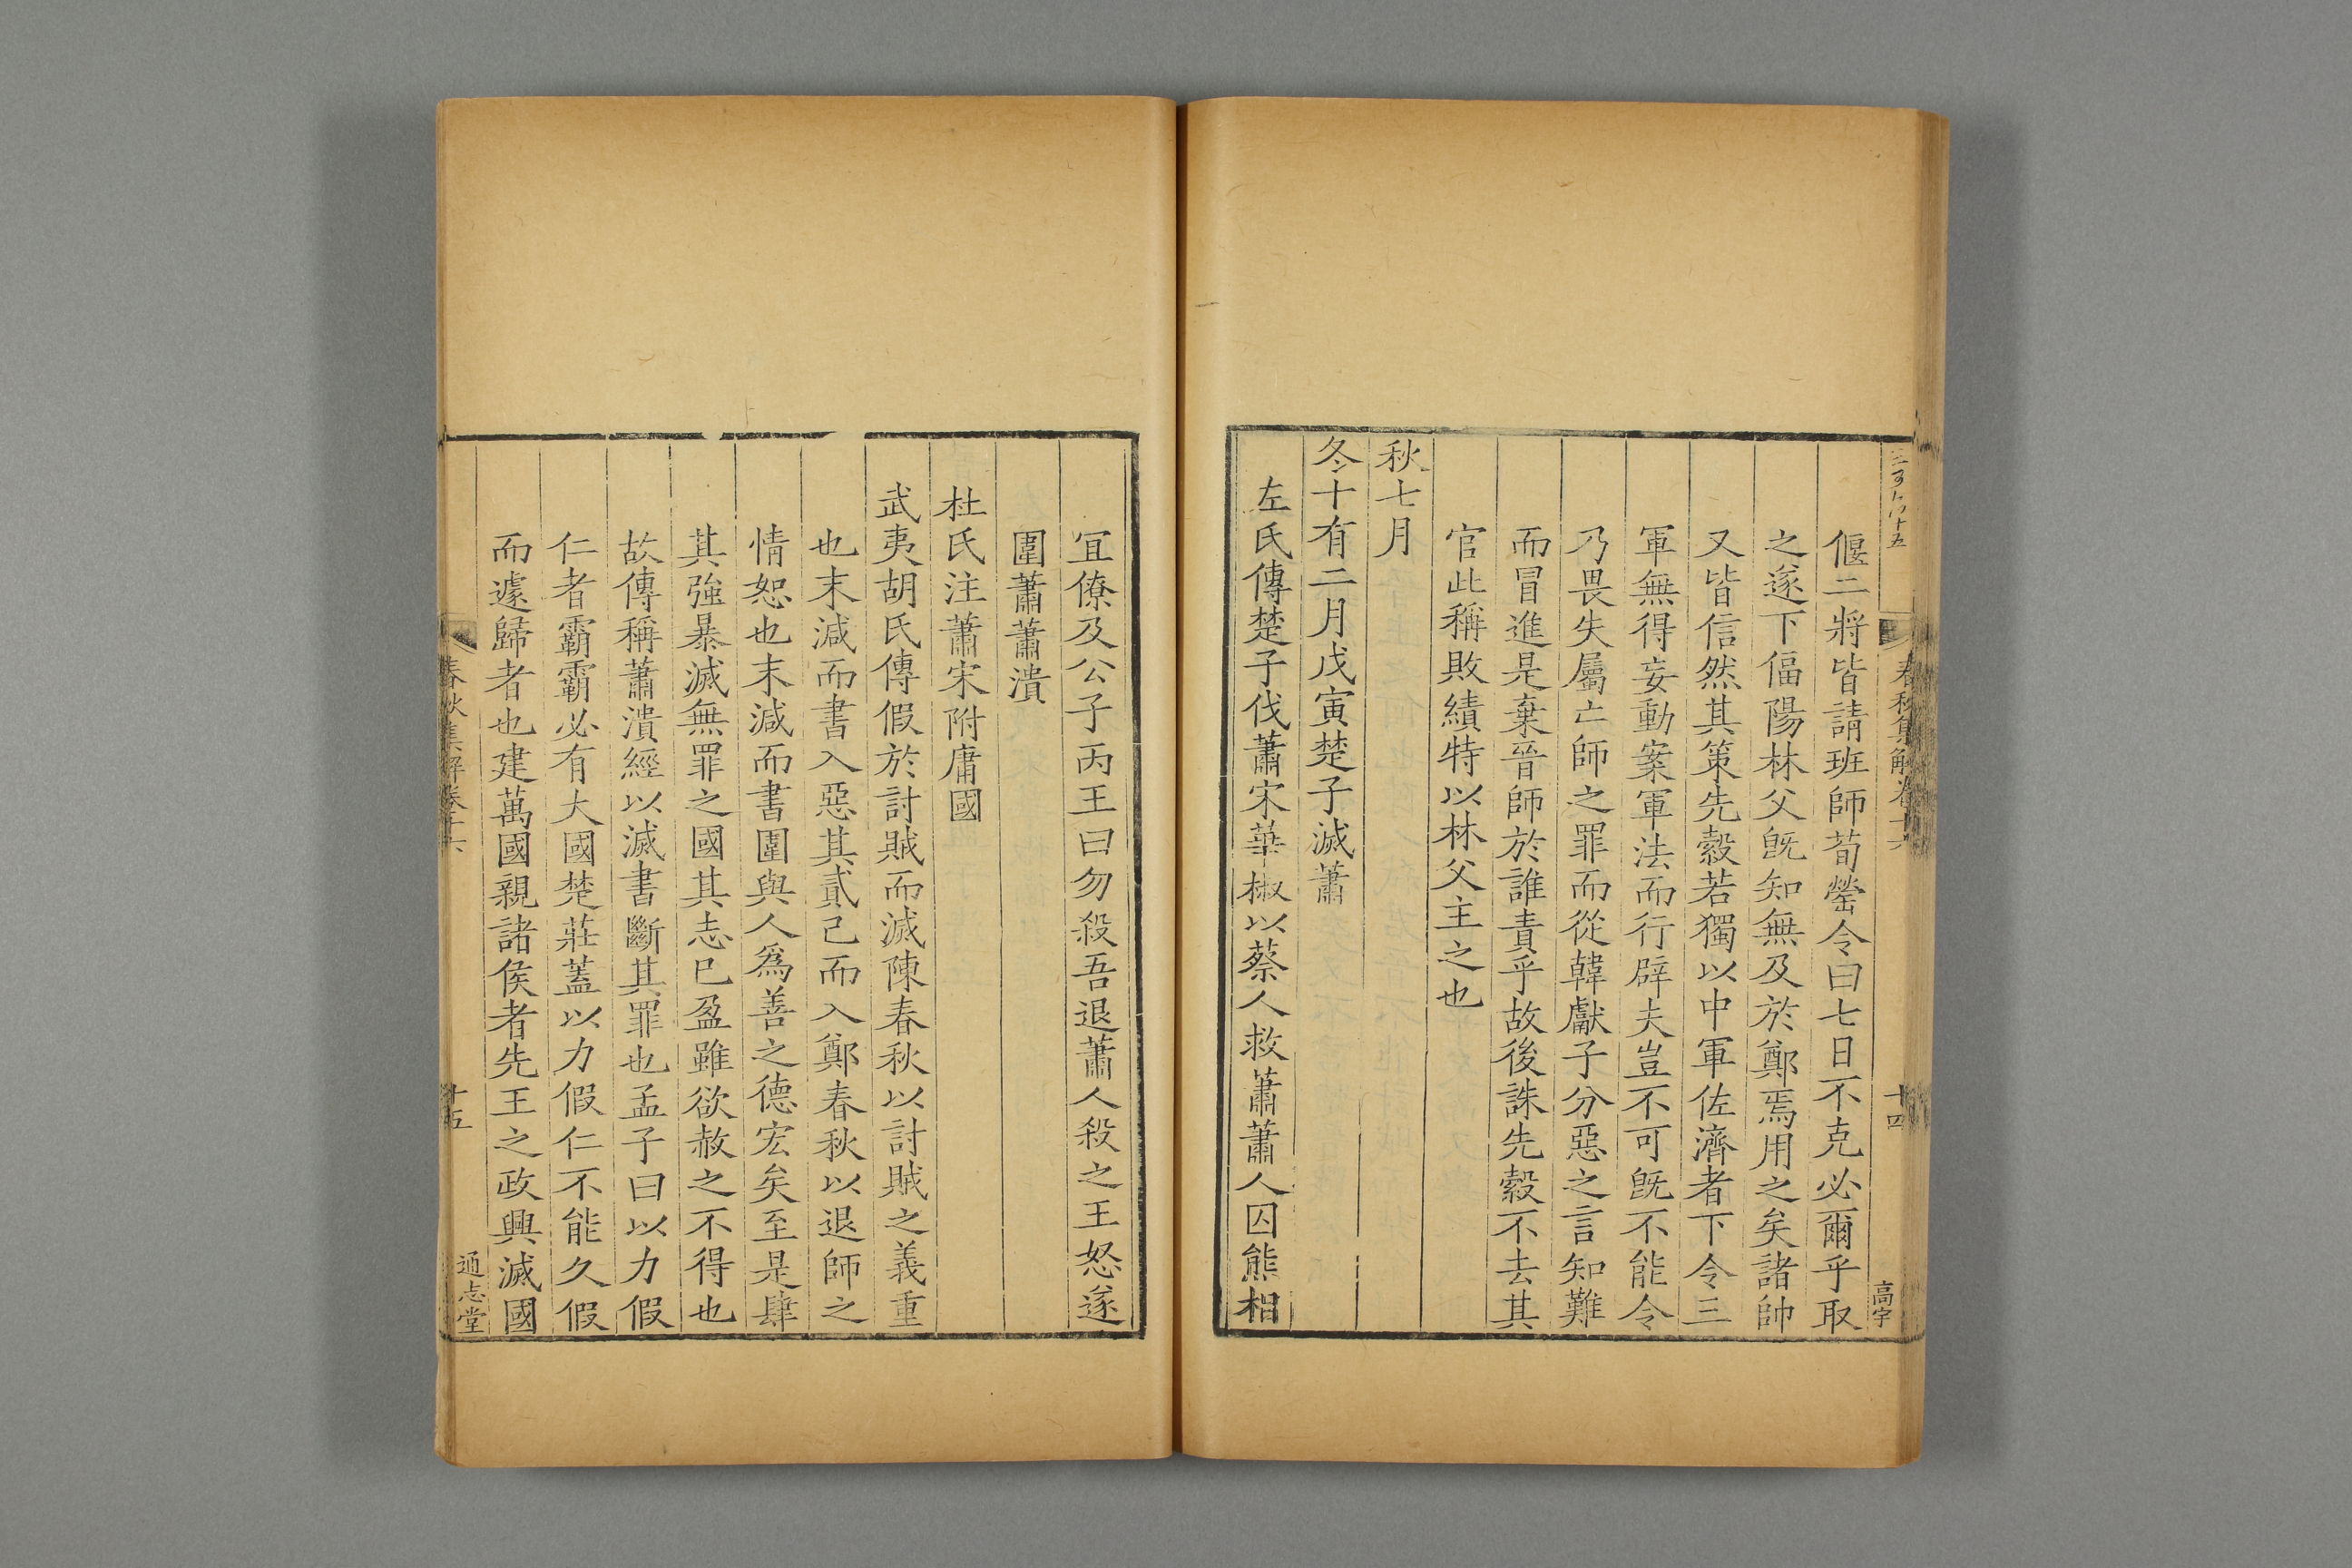 春秋集解卷十六
十四
高宇
偃二將皆請班師荀罃令曰七日不克必爾乎取
之遂下偪陽林父旣知無及於鄭焉用之矣諸帥
又皆信然其策先縠若獨以中軍佐濟者下令三
軍無得妄動案軍法而行辟夫豈不可旣不能令
乃畏失屬亡師之罪而從韓獻子分惡之言知難
而冒進是棄晉師於誰責乎故後誅先縠不去其
官此稱敗績特以林父主之也
秋七月
冬十有二月戊寅楚子滅蕭
左氏傳楚子伐蕭宋華椒以蔡人救蕭蕭人囚熊相
宜僚及公子丙王曰勿殺吾退蕭人殺之王怒遂
圍蕭蕭潰
杜氏注蕭宋附庸國
武夷胡氏傳假於討賊而滅陳春秋以討賊之義重
也末減而書入惡其貳己而入鄭春秋以退師之
情恕也末減而書圍與人爲善之德宏矣至是肆
其強暴滅無罪之國其志已盈雖欲赦之不得也
故傳稱蕭潰經以滅書斷其罪也孟子曰以力假
仁者霸霸必有大國楚莊蓋以力假仁不能久假
而遽歸者也建萬國親諸侯者先王之政興滅國
春秋集解卷十六
十五
通志堂